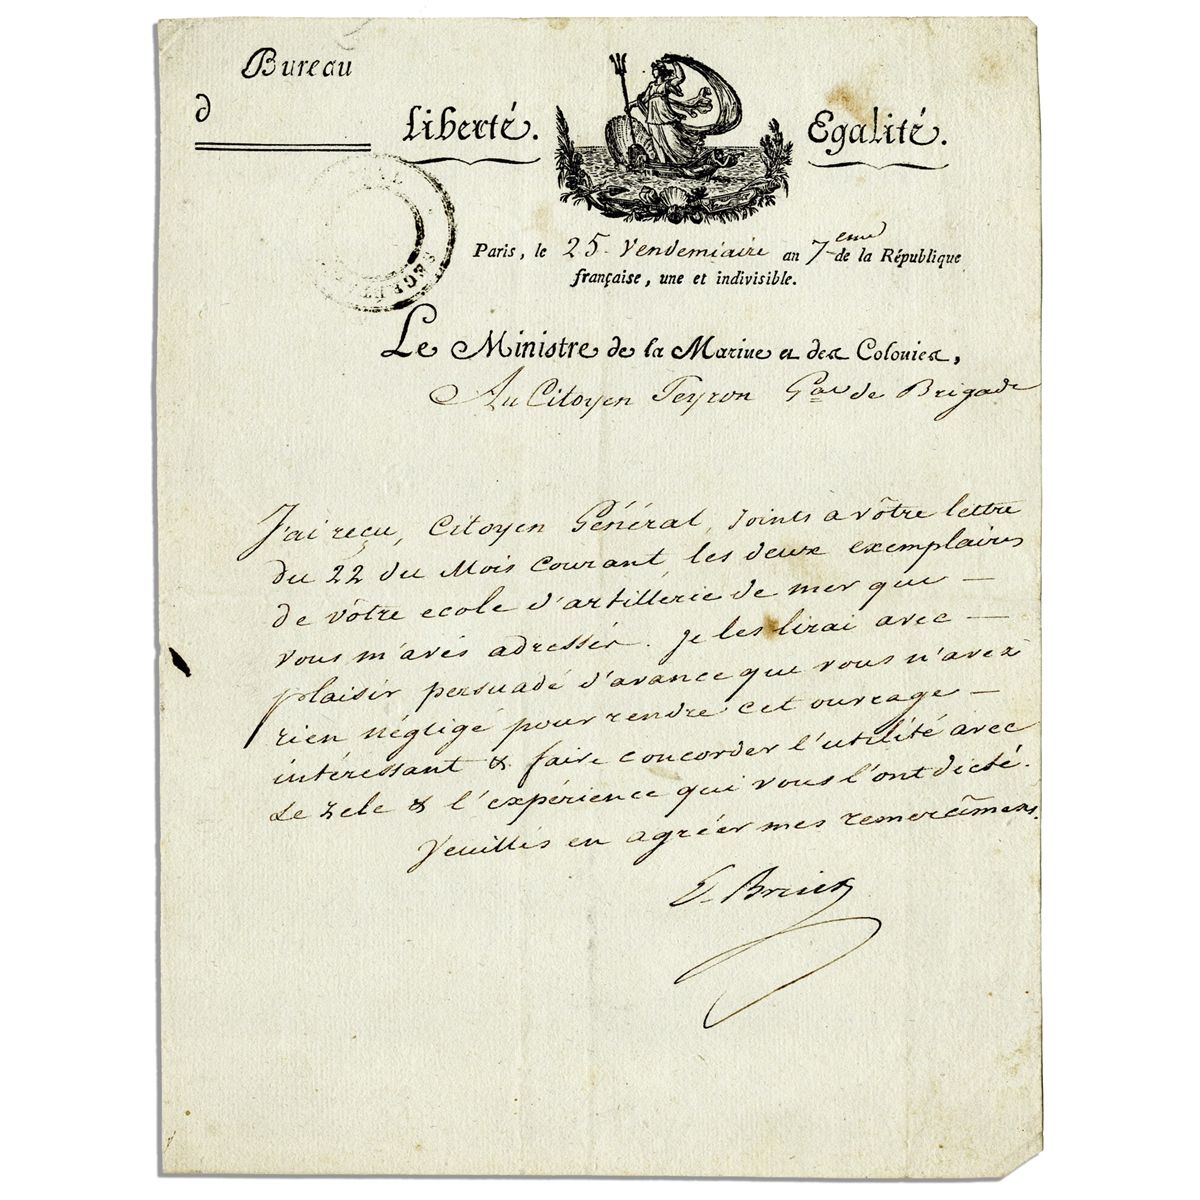 Bureau
d
Liberté. Egalité.
Paris, le 25 Vendemiaire an 7eme de la République
française, une et indivisible.
Le Ministre de la Marine et des Colonies,
Au Citoyen Teyron Gal de Brigade
J'ai reçu, Citoyen Général, Joints a vôtre lettre
du 22 du Mois Courant les deux exemplaires
de vôtre ecole d'artillerie de mer que —
vous m'avés adressés. Je les lirai avec —
plaisir persuadé d'avance que vous n'avez
rien négligé pour rendre cet ouvrage —
intéressant & faire concorder l'utilité avec
Le Zele & l'expérience qui vous l'ont dicté.
Veuillés en agréer mes remercîmens.
E. Bruix